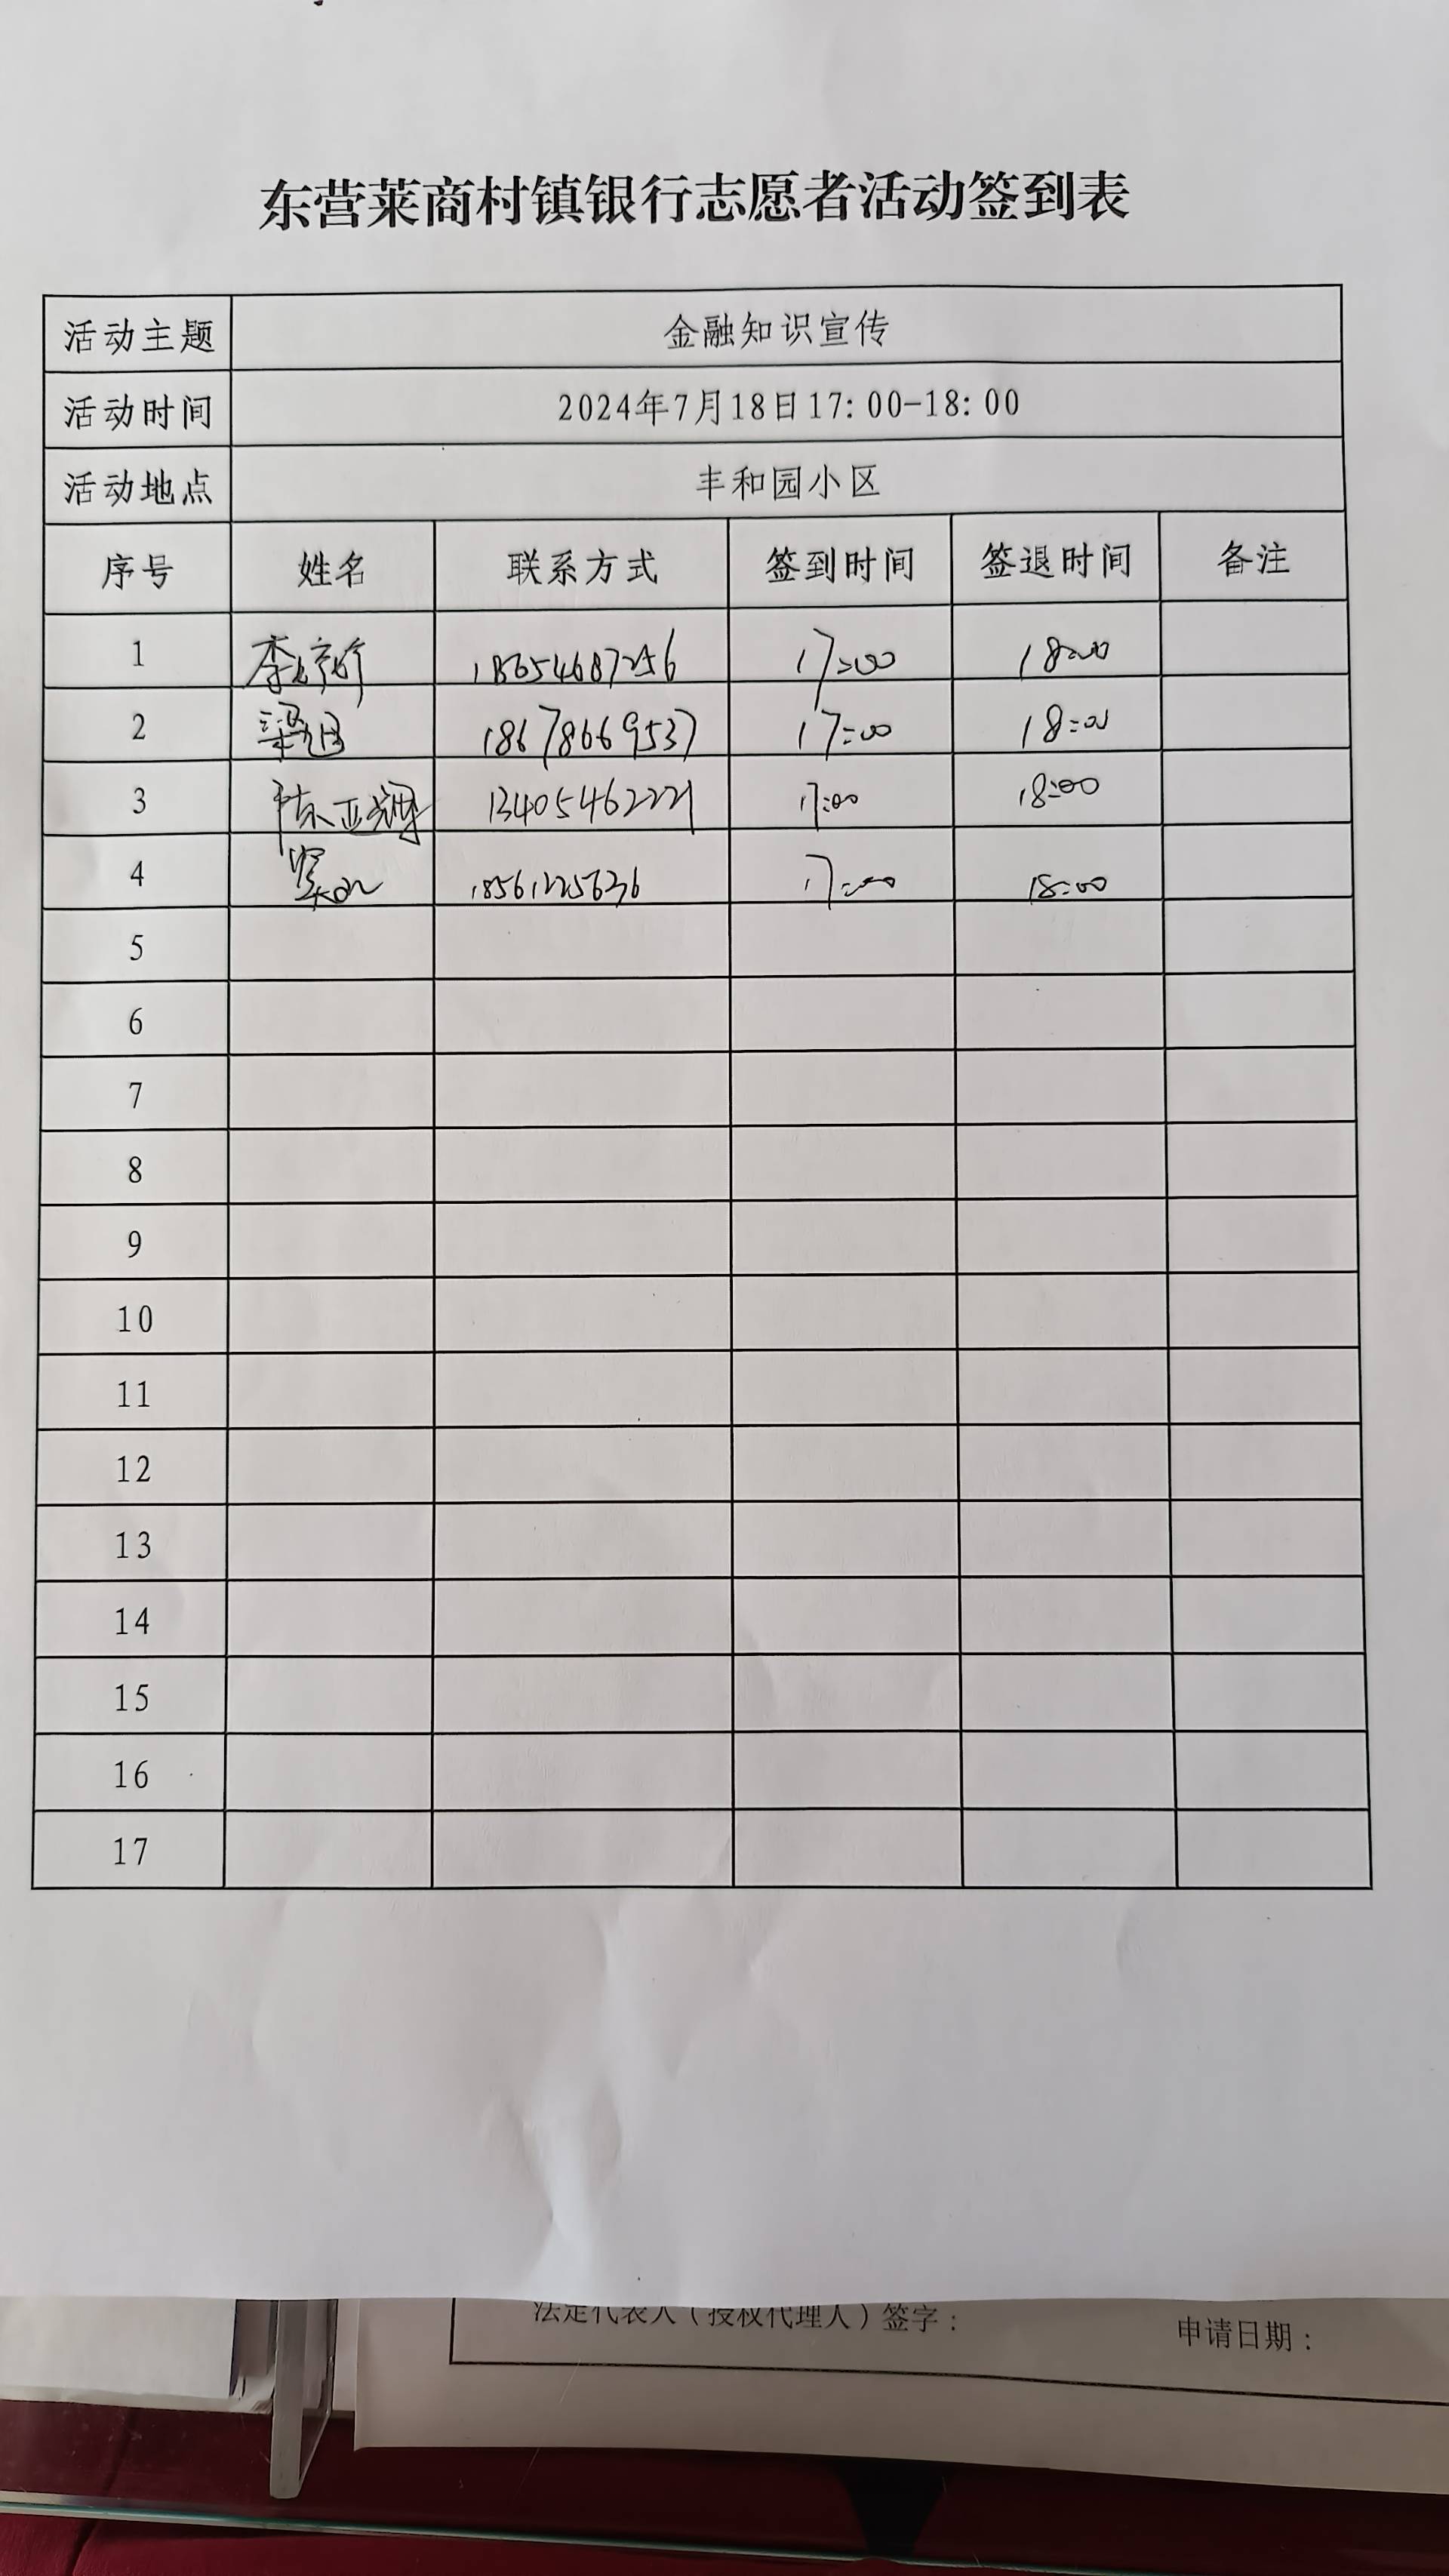 东营莱商村镇银行志愿者活动签到表
活动主题 金融知识宣传
活动时间 2024年7月18日17:00-18:00
活动地点 丰和园小区
序号 姓名 联系方式 签到时间 签退时间 备注
1 李 18654687256 17:00 18:00
2 梁旭 18678669537 17:00 18:00
3 陈亚辉 13405462221 17:00 18:00
4 18561225636 17:00 18:00
5
6
7
8
9
10
11
12
13
14
15
16
17
法定代表人（授权代理人）签字： 申请日期：